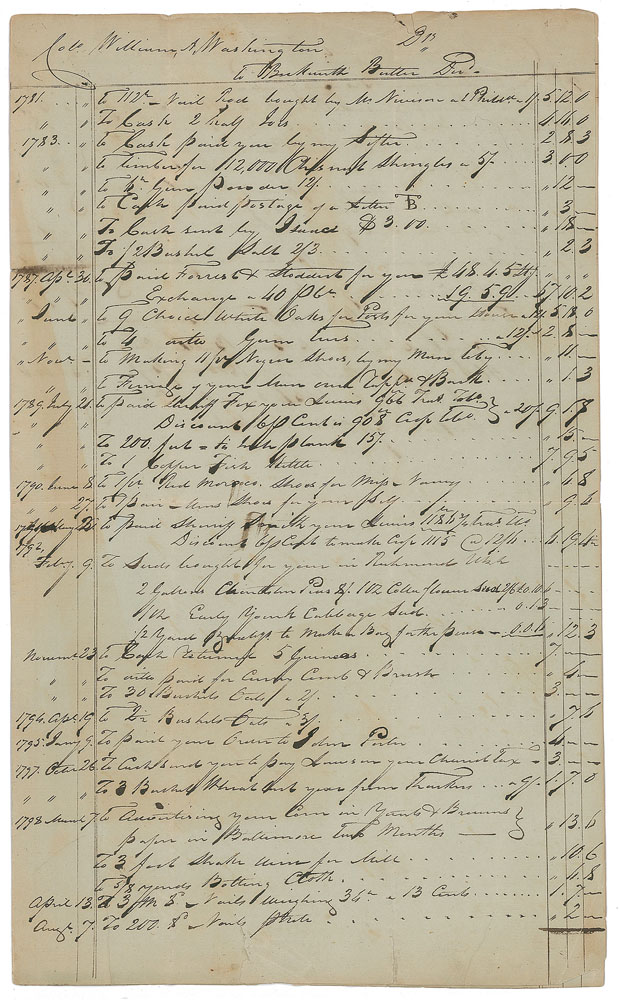 Colo William A. Washington Dr
to Beckwith Butler Dr.
1781 " To 112 lb Nail Rod bought by Mr Newson at 1/ 5 12 0
" " To Cash 2 half Joes 4 16 0
1783 " To Cash paid you by my Sister 2 8 3
" " to timber for 12,000 Chesnut Shingles a 5/ 3 0 0
" " to Gun powder 12/ " 12 —
" " to Cash paid postage of a Letter " 3 —
" " To Cash sent by $3.00 " 18 —
" " To 1/2 Bushel Salt 2/3 " 2 3
1787 Apl 30 to Paid Forrest & Stoddert for you £48.4.5
" " Exchange a 40 P Ct 19.5.9 67 10 2
" June " to 9 Choice White Oaks for Posts for your 5 8 0
" " to 4 ditto Gum trees a 12/ 2 8 —
" Novr — to Making 11 pr Negro Shoes, by my Man Toby " 11 —
" " to Ferriage of your Man over & Back " 1 3
1789 July 21 to paid Sheriff Fox your 966
" " Discount 6 P Cent is 908 Crop Tobo a 20/ 9 1 7
" " To 200 feet Inch plank 15/ " 15 —
" " To 1 Copper Fish Kettle 7 9 5
1790 June 8 to 1 pr Red Morocco Shoes for Miss Nancy " 4 8
" " 27 to 1 pair Shoes for your self " 9 6
to paid Sheriff Smith your 1184
1792 Discount 6 P Cent to make Crop 1115 @ 12/ 6 19 4
Feby 9 To Seeds bought for you in Richmond
2 Gallons Peas & 1 oz Colleflower Seed
1 lb Early York Cabbage Seed 0.13
1/2 Yard to Make a Bag for the peas " 12 3
Novemr 23 to Cash Returned 5 Guineas 7 — —
" " To ditto paid for Curry Comb & Brush " 6 —
" " To 30 Bushels Oats a 2/ 3 — —
1794 Apl 19 to Bushels Oats a 3/ " 7 6
1795 Jany 9 To paid your Order to John 4 — —
1797 Octor 26 to Cash send you to pay on your Church Tax 3 — —
" " " To 3 Bushels Wheat last year from a 9/ 1 7 0
1798 March 7 to Advertising your Corn in Yants & Browns
paper in Baltimore two Months " 13 6
To 3 feet for Mill " 10 6
to 5/8 yards Bolting Cloth " 6 8
April 13 To Nails Weighing a 13 Cents 1 7 —
Augt 7 To 200 Nails " 2 —